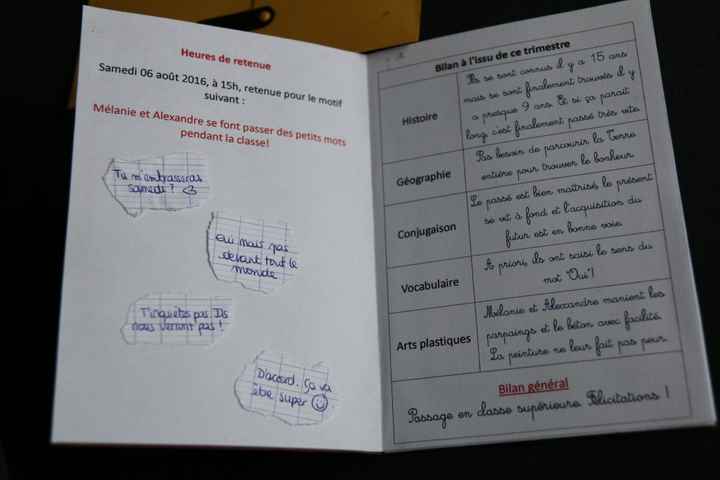 Heures de retenue
Samedi 06 août 2016, à 15h, retenue pour le motif
suivant :
Mélanie et Alexandre se font passer des petits mots
pendant la classe!
Tu m'embrasseras
samedi ? <3
Oui mais pas
devant tout le
monde
T'inquiètes pas. Ils
nous verront pas !
D'accord. Ça va
être super ☺
Bilan à l'issu de ce trimestre
Histoire
Ils se sont connus il y a 15 ans
mais se sont finalement trouvés il y
a presque 9 ans. Et si ça paraît
long c'est finalement passé très vite.
Géographie
Pas besoin de parcourir la Terre
entière pour trouver le bonheur.
Conjugaison
Le passé est bien maîtrisé, le présent
se vit à fond et l'acquisition du
futur est en bonne voie.
Vocabulaire
A priori, ils ont saisi le sens du
mot "Oui"!
Arts plastiques
Mélanie et Alexandre manient les
parpaings et le béton avec facilité.
La peinture ne leur fait pas peur.
Bilan général
Passage en classe supérieure. Félicitations !